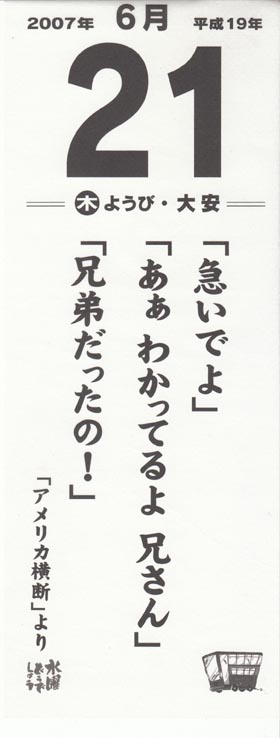 2007年 6月 平成19年
21
木ようび・大安
「急いでよ」
「あぁ わかってるよ 兄さん」
「兄弟だったの！」
「アメリカ横断」より
水曜
どうでしょう